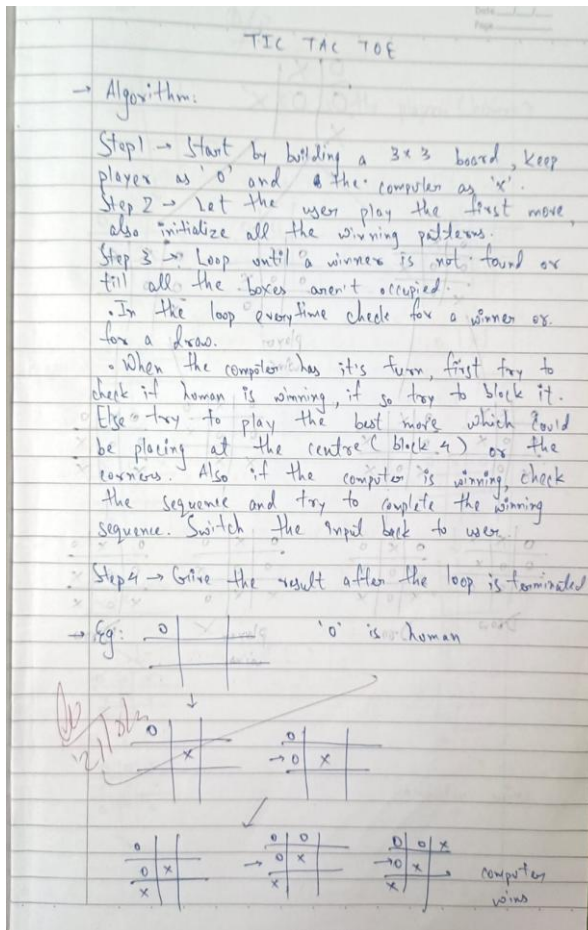 Date
Page
TIC TAC TOE
→ Algorithm:
Step1 → Start by building a 3×3 board, keep
player as 'O' and the computer as 'x'.
Step 2 → Let the user play the first move,
also initialize all the winning patterns.
Step 3 → Loop until a winner is not found or
till all the boxes aren't occupied.
• In the loop everytime check for a winner or
for a draw.
• When the computer has it's turn, first try to
check if human is winning, if so try to block it.
Else try to play the best move which could
be placing at the centre (block 4) or the
corners. Also if the computer is winning, check
the sequence and try to complete the winning
sequence. Switch the input back to user.
Step4 → Give the result after the loop is terminated
→ Eg: O 'O' is human
O O
x → O x
O O O O O x
O x → O x → O x computer
x x x wins